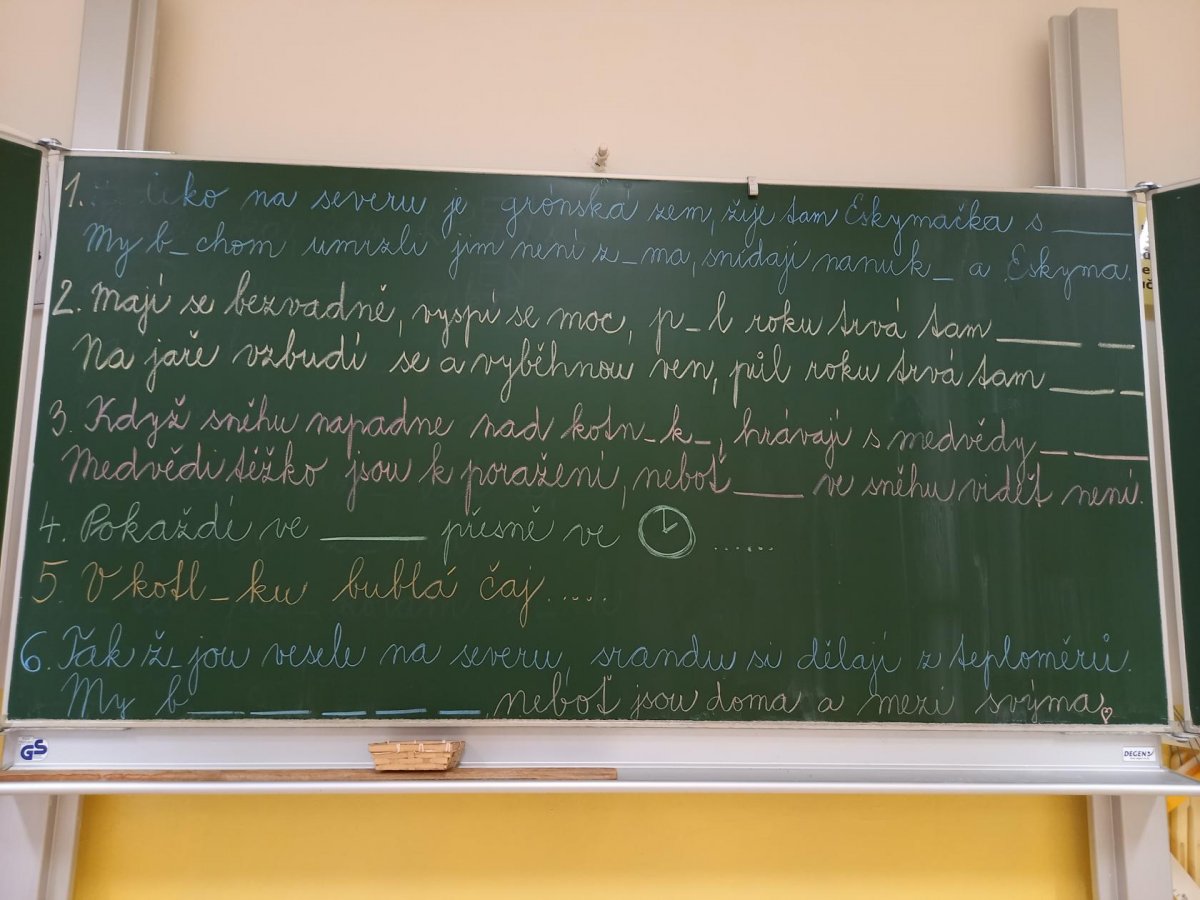 1. na severu je grónská zem, žije tam Eskymačka s _____
My b_chom umrzli jim není z_ma, snídají nanuk_ a Eskyma.
2. Mají se bezvadně, vyspí se moc, p_l roku trvá tam _____ __
Na jaře vzbudí se a vyběhnou ven, půl roku trvá tam ____ __
3. Když sněhu napadne nad kotn_k_, hrávají s medvědy __ _____
Medvědi těžko jsou k poražení, neboť ____ ve sněhu vidět není.
4. Pokaždé ve _____ přesně ve ......
5. V kotl_ku bublá čaj.....
6. Tak ž_jou vesele na severu, srandu si dělají z teploměrů.
My b___ ___ __ __ __ neboť jsou doma a mezi svýma
GS
DEGEN